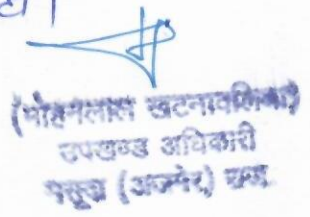 (मोहनलाल खटनावलिया)
उपखण्ड अधिकारी
मसूदा (अजमेर) राज.